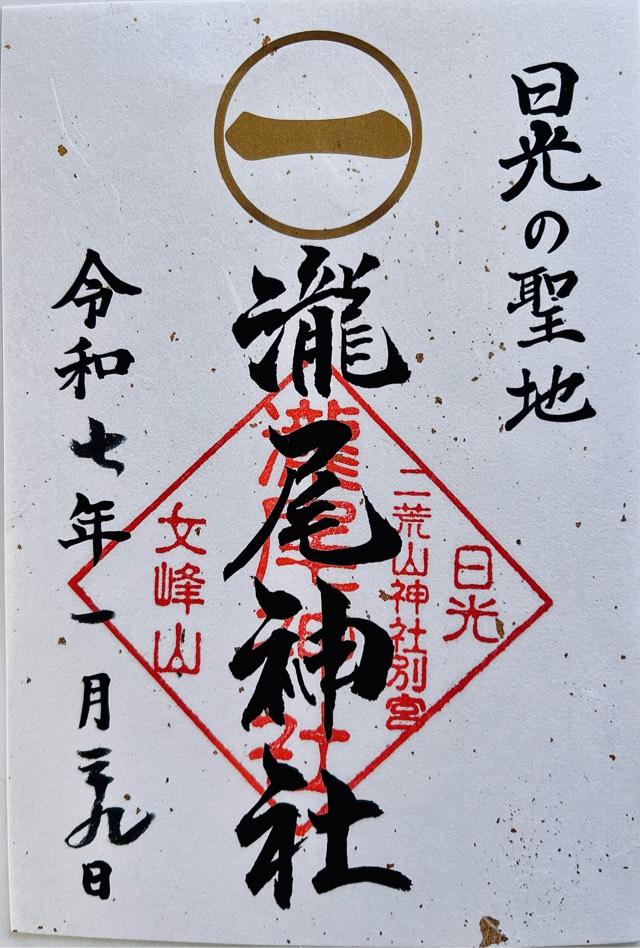 日光の聖地
一
瀧尾神社
日光
二荒山神社別宮
瀧尾神社
女峰山
令和七年一月二十九日